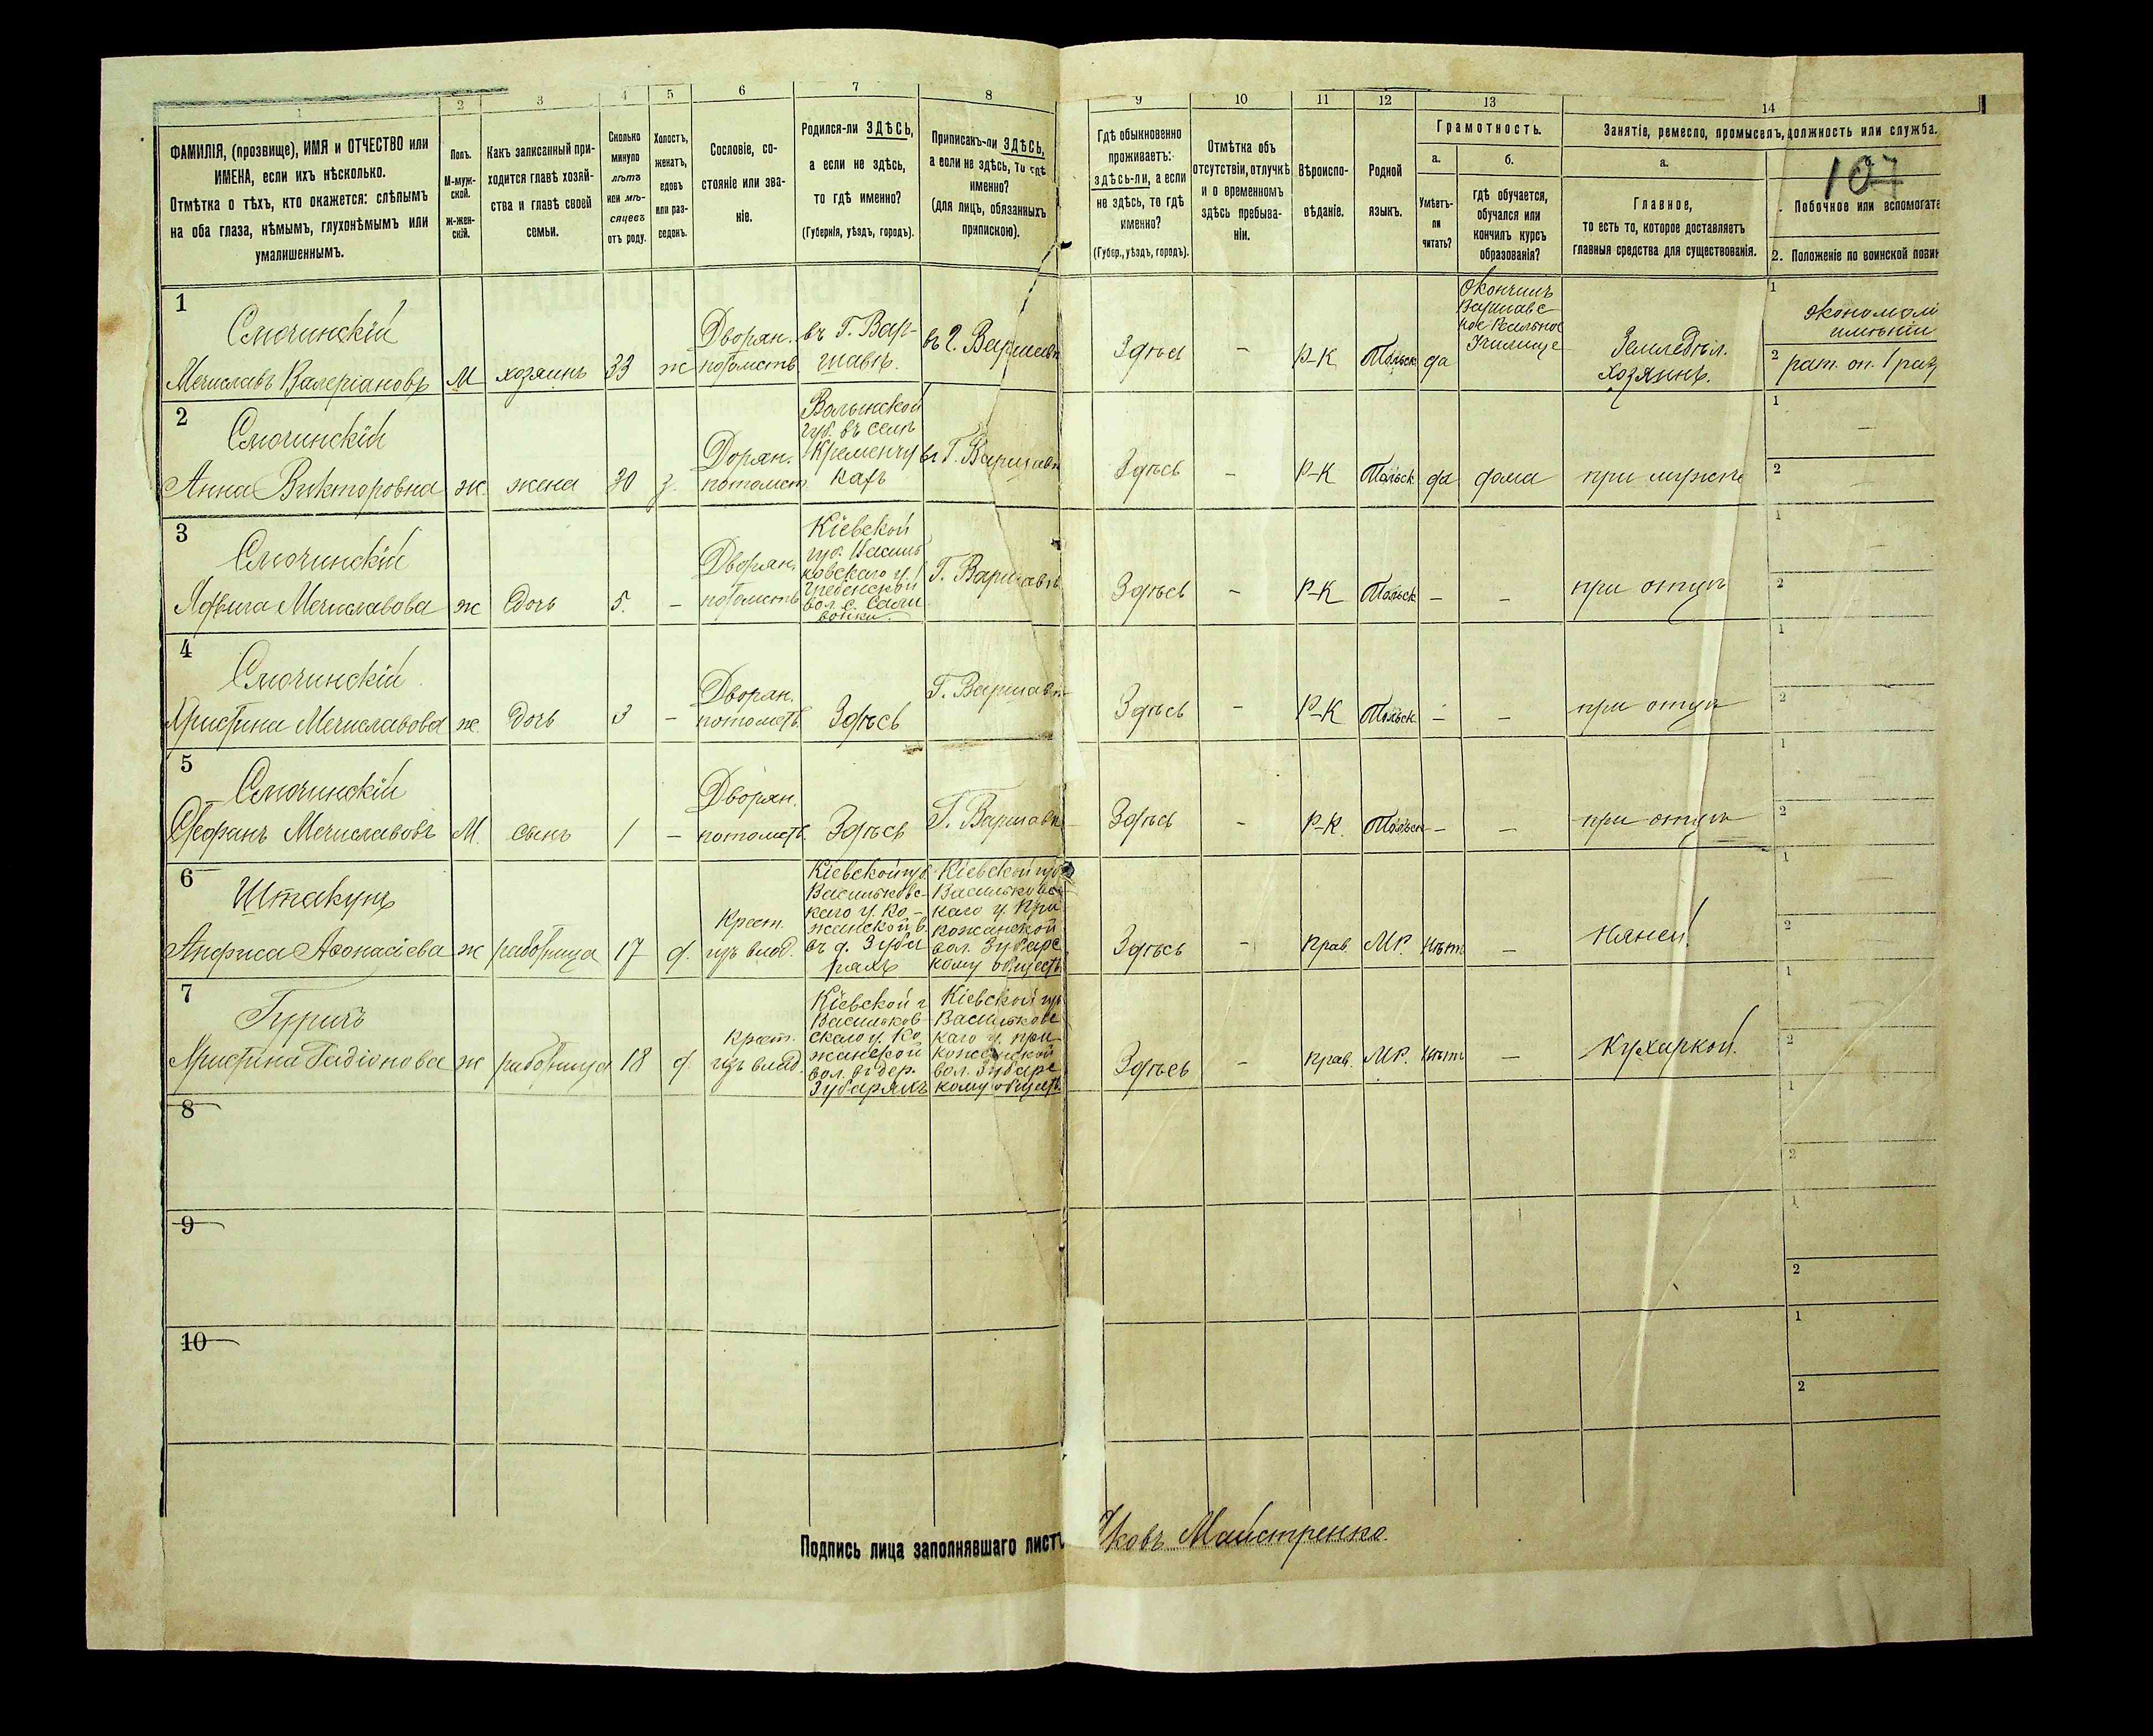 1 2 3 4 5 6 7 8 9 10 11 12 13 14
ФАМИЛІЯ, (прозвище), ИМЯ и ОТЧЕСТВО или
ИМЕНА, если ихъ нѣсколько.
Отмѣтка о тѣхъ, кто окажется: слѣпымъ
на оба глаза, нѣмымъ, глухонѣмымъ или
умалишеннымъ.
Полъ.
М-муж-
ской.
ж-жен-
скій.
Какъ записанный при-
ходится главѣ хозяй-
ства и главѣ своей
семьи.
Сколько
минуло
лѣтъ
или мѣ-
сяцевъ
отъ роду.
Холостъ,
женатъ,
вдовъ
или раз-
веденъ.
Сословіе, со-
стояніе или зва-
ніе.
Родился-ли ЗДѢСЬ,
а если не здѣсь,
то гдѣ именно?
(Губернія, уѣздъ, городъ).
Приписанъ-ли ЗДѢСЬ,
а если не здѣсь, то гдѣ
именно?
(для лицъ, обязанныхъ
припискою).
Гдѣ обыкновенно
проживаетъ:
здѣсь-ли, а если
не здѣсь, то гдѣ
именно?
(Губер., уѣздъ, городъ).
Отмѣтка объ
отсутствіи, отлучкѣ
и о временномъ
здѣсь пребыва-
ніи.
Вѣроиспо-
вѣданіе.
Родной
языкъ.
Грамотность.
а.
Умѣетъ-
ли
читать?
б.
гдѣ обучается,
обучался или
кончилъ курсъ
образованія?
Занятіе, ремесло, промыселъ, должность или служба.
а.
Главное,
то есть то, которое доставляетъ
главныя средства для существованія.
107
Побочное или вспомогате
2. Положеніе по воинской повин
1
Смочинскій
Мечиславъ Валеріановъ
М
хозяинъ
33
ж
Дворян.
потомств
въ Г. Вар-
шавѣ.
въ Г. Варшавѣ
Здѣсь
–
Р-К
Польск
да
Окончилъ
Варшавс-
кое Реальное
Училище
Земледѣл.
хозяинъ.
1
имѣніи
2 рат. оп. 1 раз
2
Смочинскій
Анна Викторовна
ж.
жена
30
з.
Дорян.
потомст
Волынской
губ. въ селѣ
Кременчу
кахъ
въ Г. Варшавѣ
Здѣсь
–
Р-К
Польск
да
дома
при мужѣ
1 –
2 –
3
Смочинскій
Ядвига Мечиславова
ж
дочь
5.
–
Дворян.
потомств
Кіевской
губ. Василь
ковскаго у.
Гребенской
вол. с. Сали
вонки.
Г. Варшавѣ
Здѣсь
–
Р-К
Польск
–
–
при отцѣ
1 –
2 –
4
Смочинскій
Христина Мечиславова
ж.
дочь
3
–
Дворян.
потомств.
Здѣсь
Г. Варшавѣ
Здѣсь
–
Р-К
Польск
–
–
при отцѣ
1 –
2 –
5
Смочинскій
Стефанъ Мечиславовъ
М.
сынъ
1
–
Дворян.
потомств.
Здѣсь
Г. Варшавѣ
Здѣсь
–
Р-К.
Польск
–
–
при отцѣ
1
2
6
Штакунъ
Анфиса Аѳонасіева
ж
работница
17
д.
Крест.
изъ влад.
Кіевской губ.
Васильковс-
каго у. Ко-
жанской в.
въ д. Зуба
ряхъ
Кіевской губ
Васильковс
каго у. При
кожанской
вол. Зубарс
кому обществ
Здѣсь
–
Прав.
МР.
нѣтъ
–
няней.
1
2
7
Гуричъ
Христина Гадіонова
ж
работница
18
д.
Крест.
изъ влад.
Кіевской г
Васильков-
скаго у. Ко
жанской
вол. въ дер.
Зубаряхъ
Кіевской губ
Васильковс
каго у. при
кожанской
вол. Зубарс
кому обществ.
Здѣсь
–
Прав.
МР.
нѣтъ
–
Кухаркой.
1
2
8
1
2
9
1
2
10
1
2
Подпись лица заполнявшаго листъ Яковъ Майстренко.